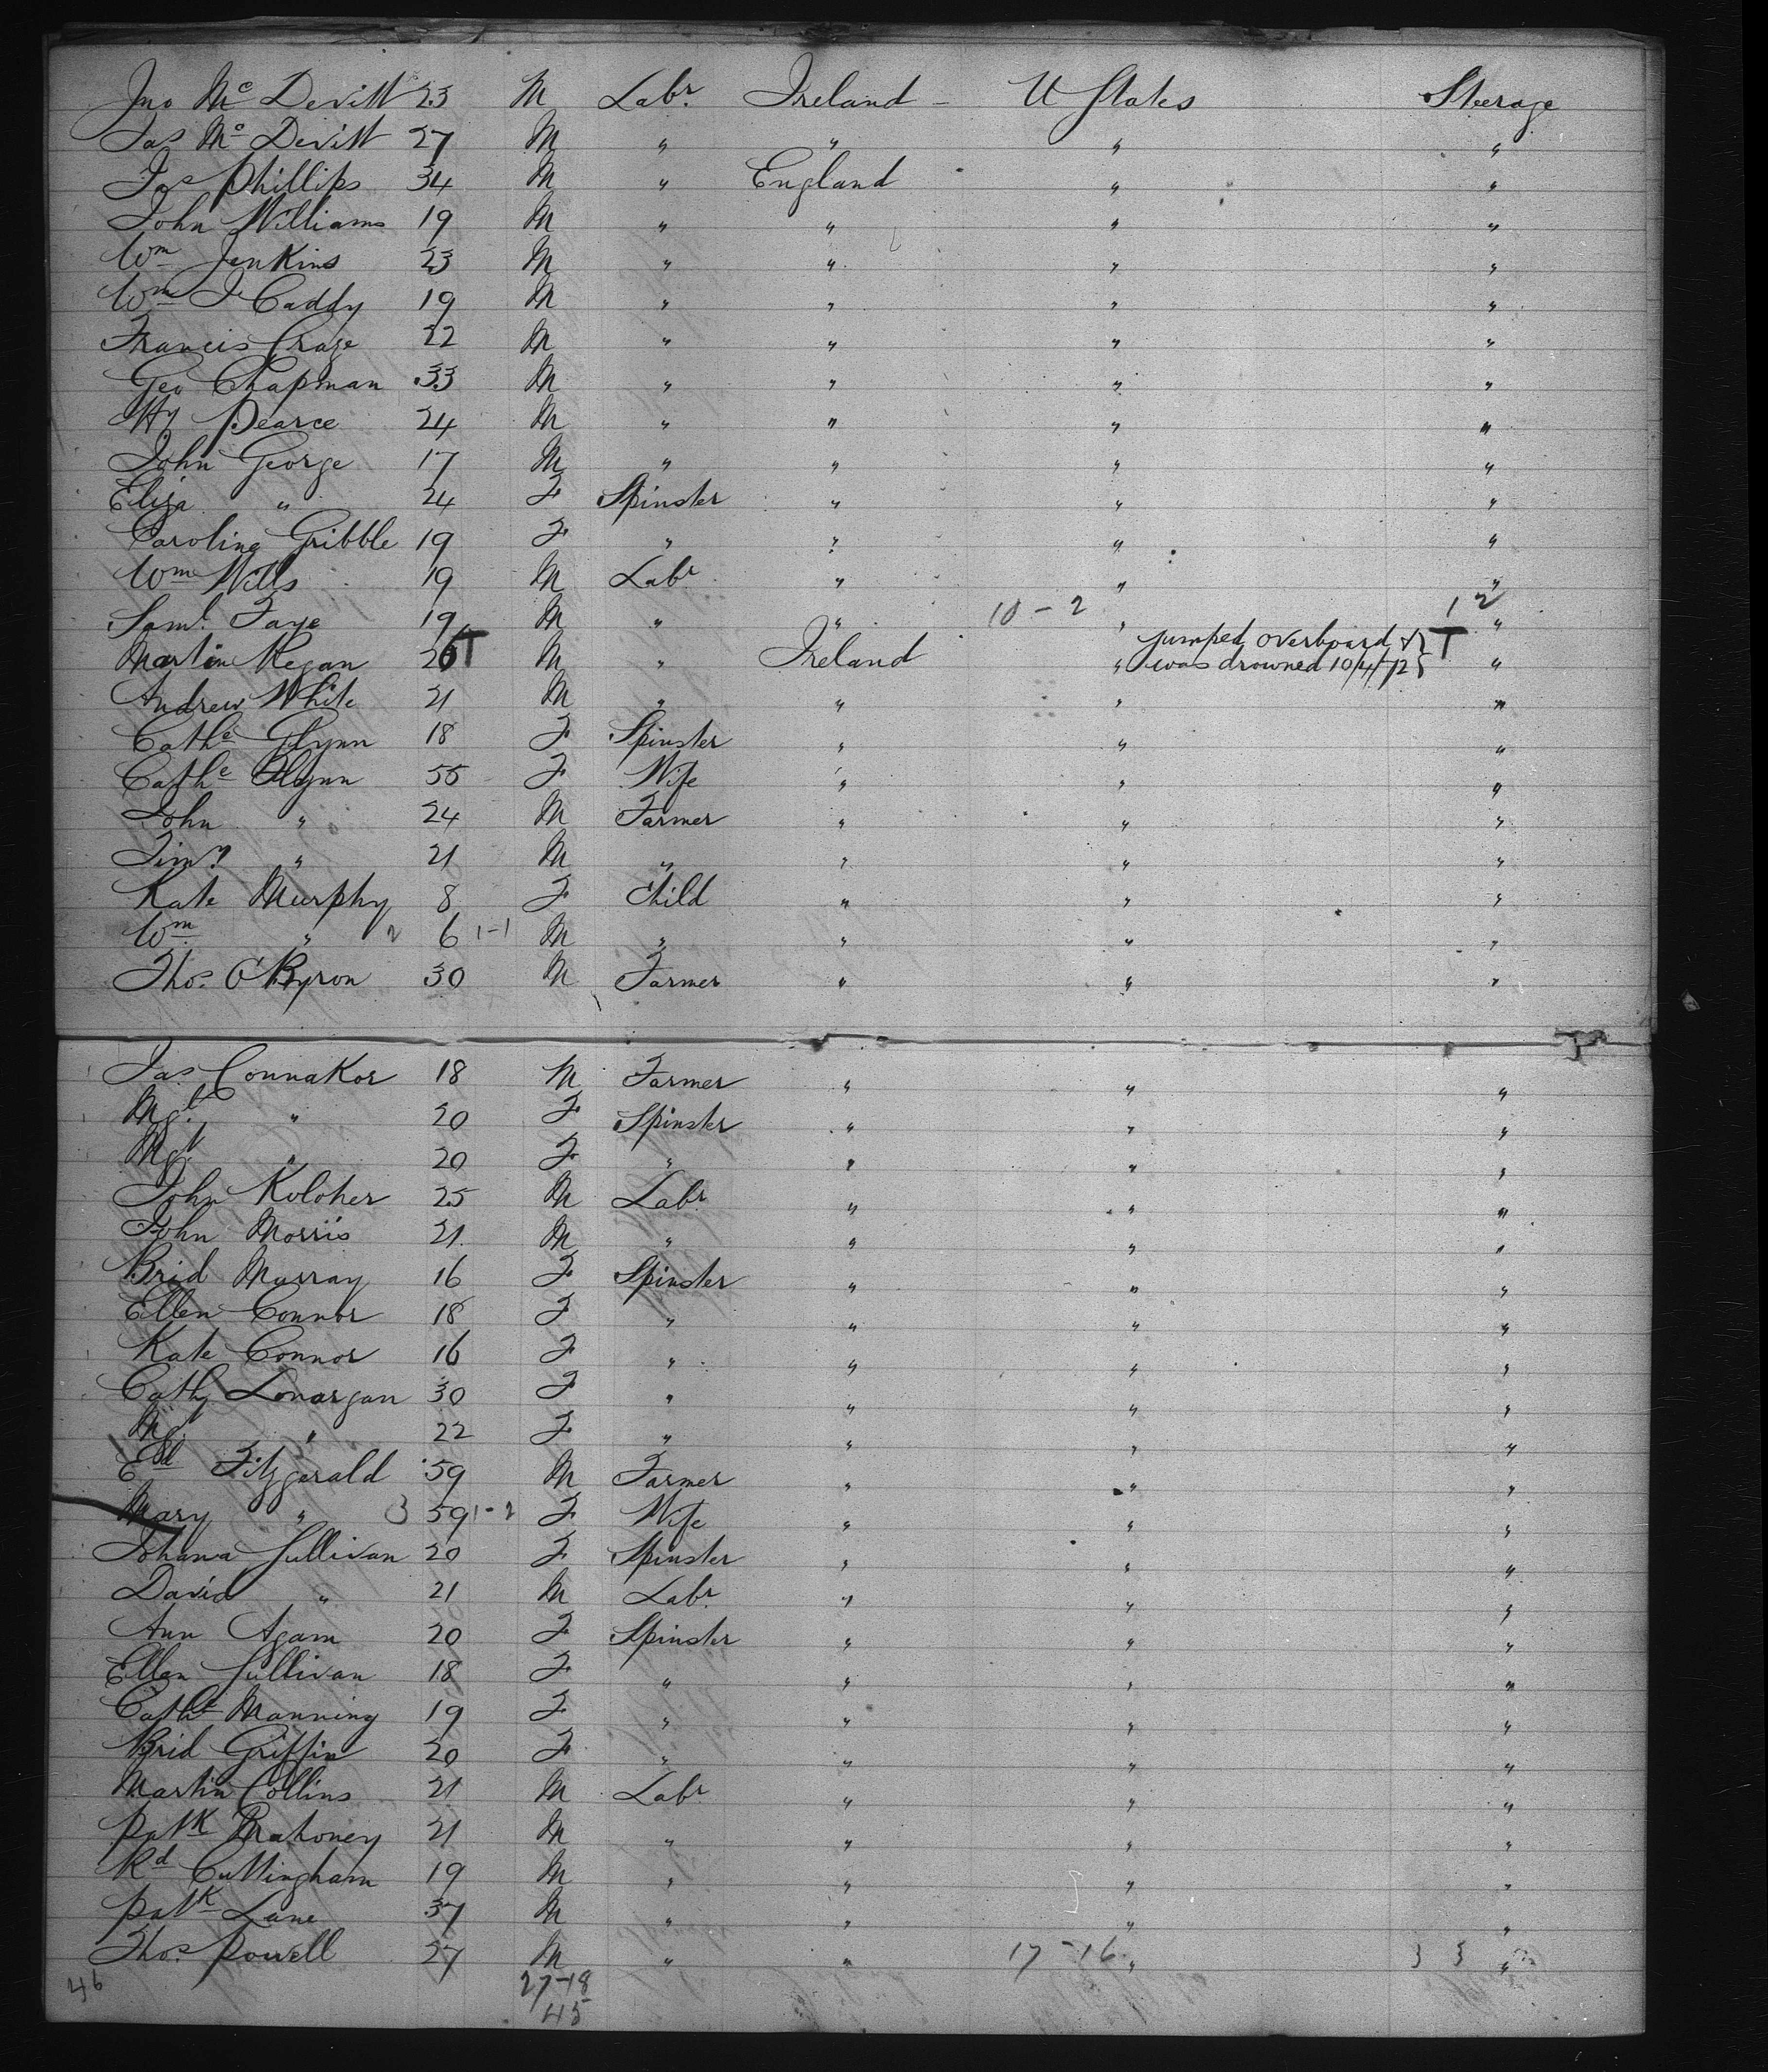 Jno McDevitt 23 M Labr Ireland - U States Steerage
Jas McDevitt 27 M " " " "
Jos Phillips 34 M " England " "
John Williams 19 M " " " "
Wm Jenkins 23 M " " " "
Wm J Caddy 19 M " " " "
Francis Craze 22 M " " " "
Geo Chapman 33 M " " " "
Hy Pearce 24 M " " " "
John George 17 M " " " "
Eliza " 24 F Spinster " " "
Caroline Gribble 19 F " " " "
Wm Wills 19 M Labr " " "
Saml Faye 19 M " " 10-2 " 12 "
Martin Regan 26 T M " Ireland " jumped overboard & was drowned 10/4/72 T "
Andrew White 21 M " " " "
Cathe Glynn 18 F Spinster " " "
Cathe Glynn 55 F Wife " " "
John " 24 M Farmer " " "
Timy " 21 M " " " "
Kate Murphy 8 F Child " " "
Wm " 2 6 1-1 M " " " "
Thos O'Byron 30 M Farmer " " "
Jas Connakor 18 M Farmer " " "
Mgt " 20 F Spinster " " "
Mgt " 20 F " " " "
John Koloher 25 M Labr " " "
John Morris 21 M " " " "
Brid Murray 16 F Spinster " " "
Ellen Connor 18 F " " " "
Kate Connor 16 F " " " "
Cath Lonargan 30 F " " " "
Mgt " 22 F " " " "
Ed Fitzgerald 59 M Farmer " " "
Mary " 3 59 1-2 F Wife " " "
Johana Sullivan 20 F Spinster " " "
David " 21 M Labr " " "
Ann Agam 20 F Spinster " " "
Ellen Sullivan 18 F " " " "
Cathe Manning 19 F " " " "
Brid Griffin 20 F " " " "
Martin Collins 21 M Labr " " "
Patk Mahoney 21 M " " " "
Rd Cuttingham 19 M " " " "
Patk Lane 37 M " " " "
Thos Powell 27 M " " 17-16 " 3 3 "
46 27-18
45